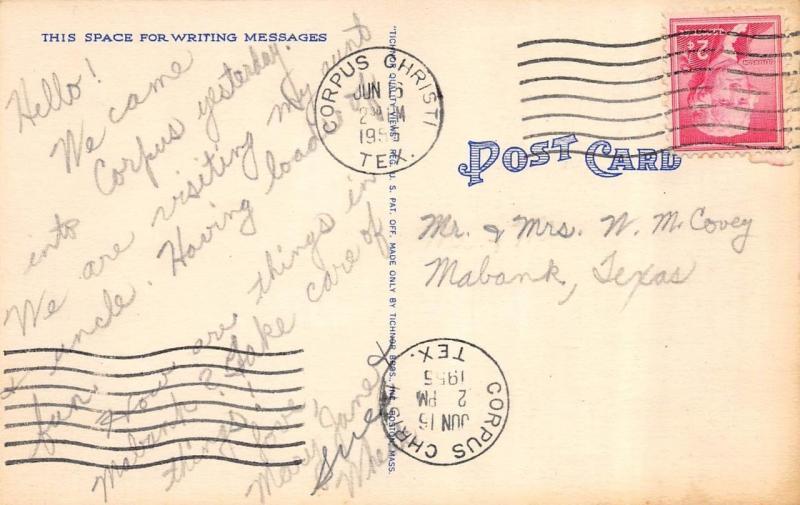 THIS SPACE FOR WRITING MESSAGES
Hello!
We came
into Corpus yesterday.
We are visiting my aunt
& uncle. Having loads of
fun. How are things in
Mabank? Take care of
things!
Love,
Mary Jane &
Sue
"TICHNOR QUALITY VIEWS," REG. U. S. PAT. OFF. MADE ONLY BY TICHNOR BROS., INC., BOSTON, MASS.
CORPUS CHRISTI
JUN 15
2 PM
1955
TEX.
2¢
POST CARD
Mr. & Mrs. N. McCovey
Mabank, Texas
CORPUS CHR
JUN 15
2 PM
1955
TEX.